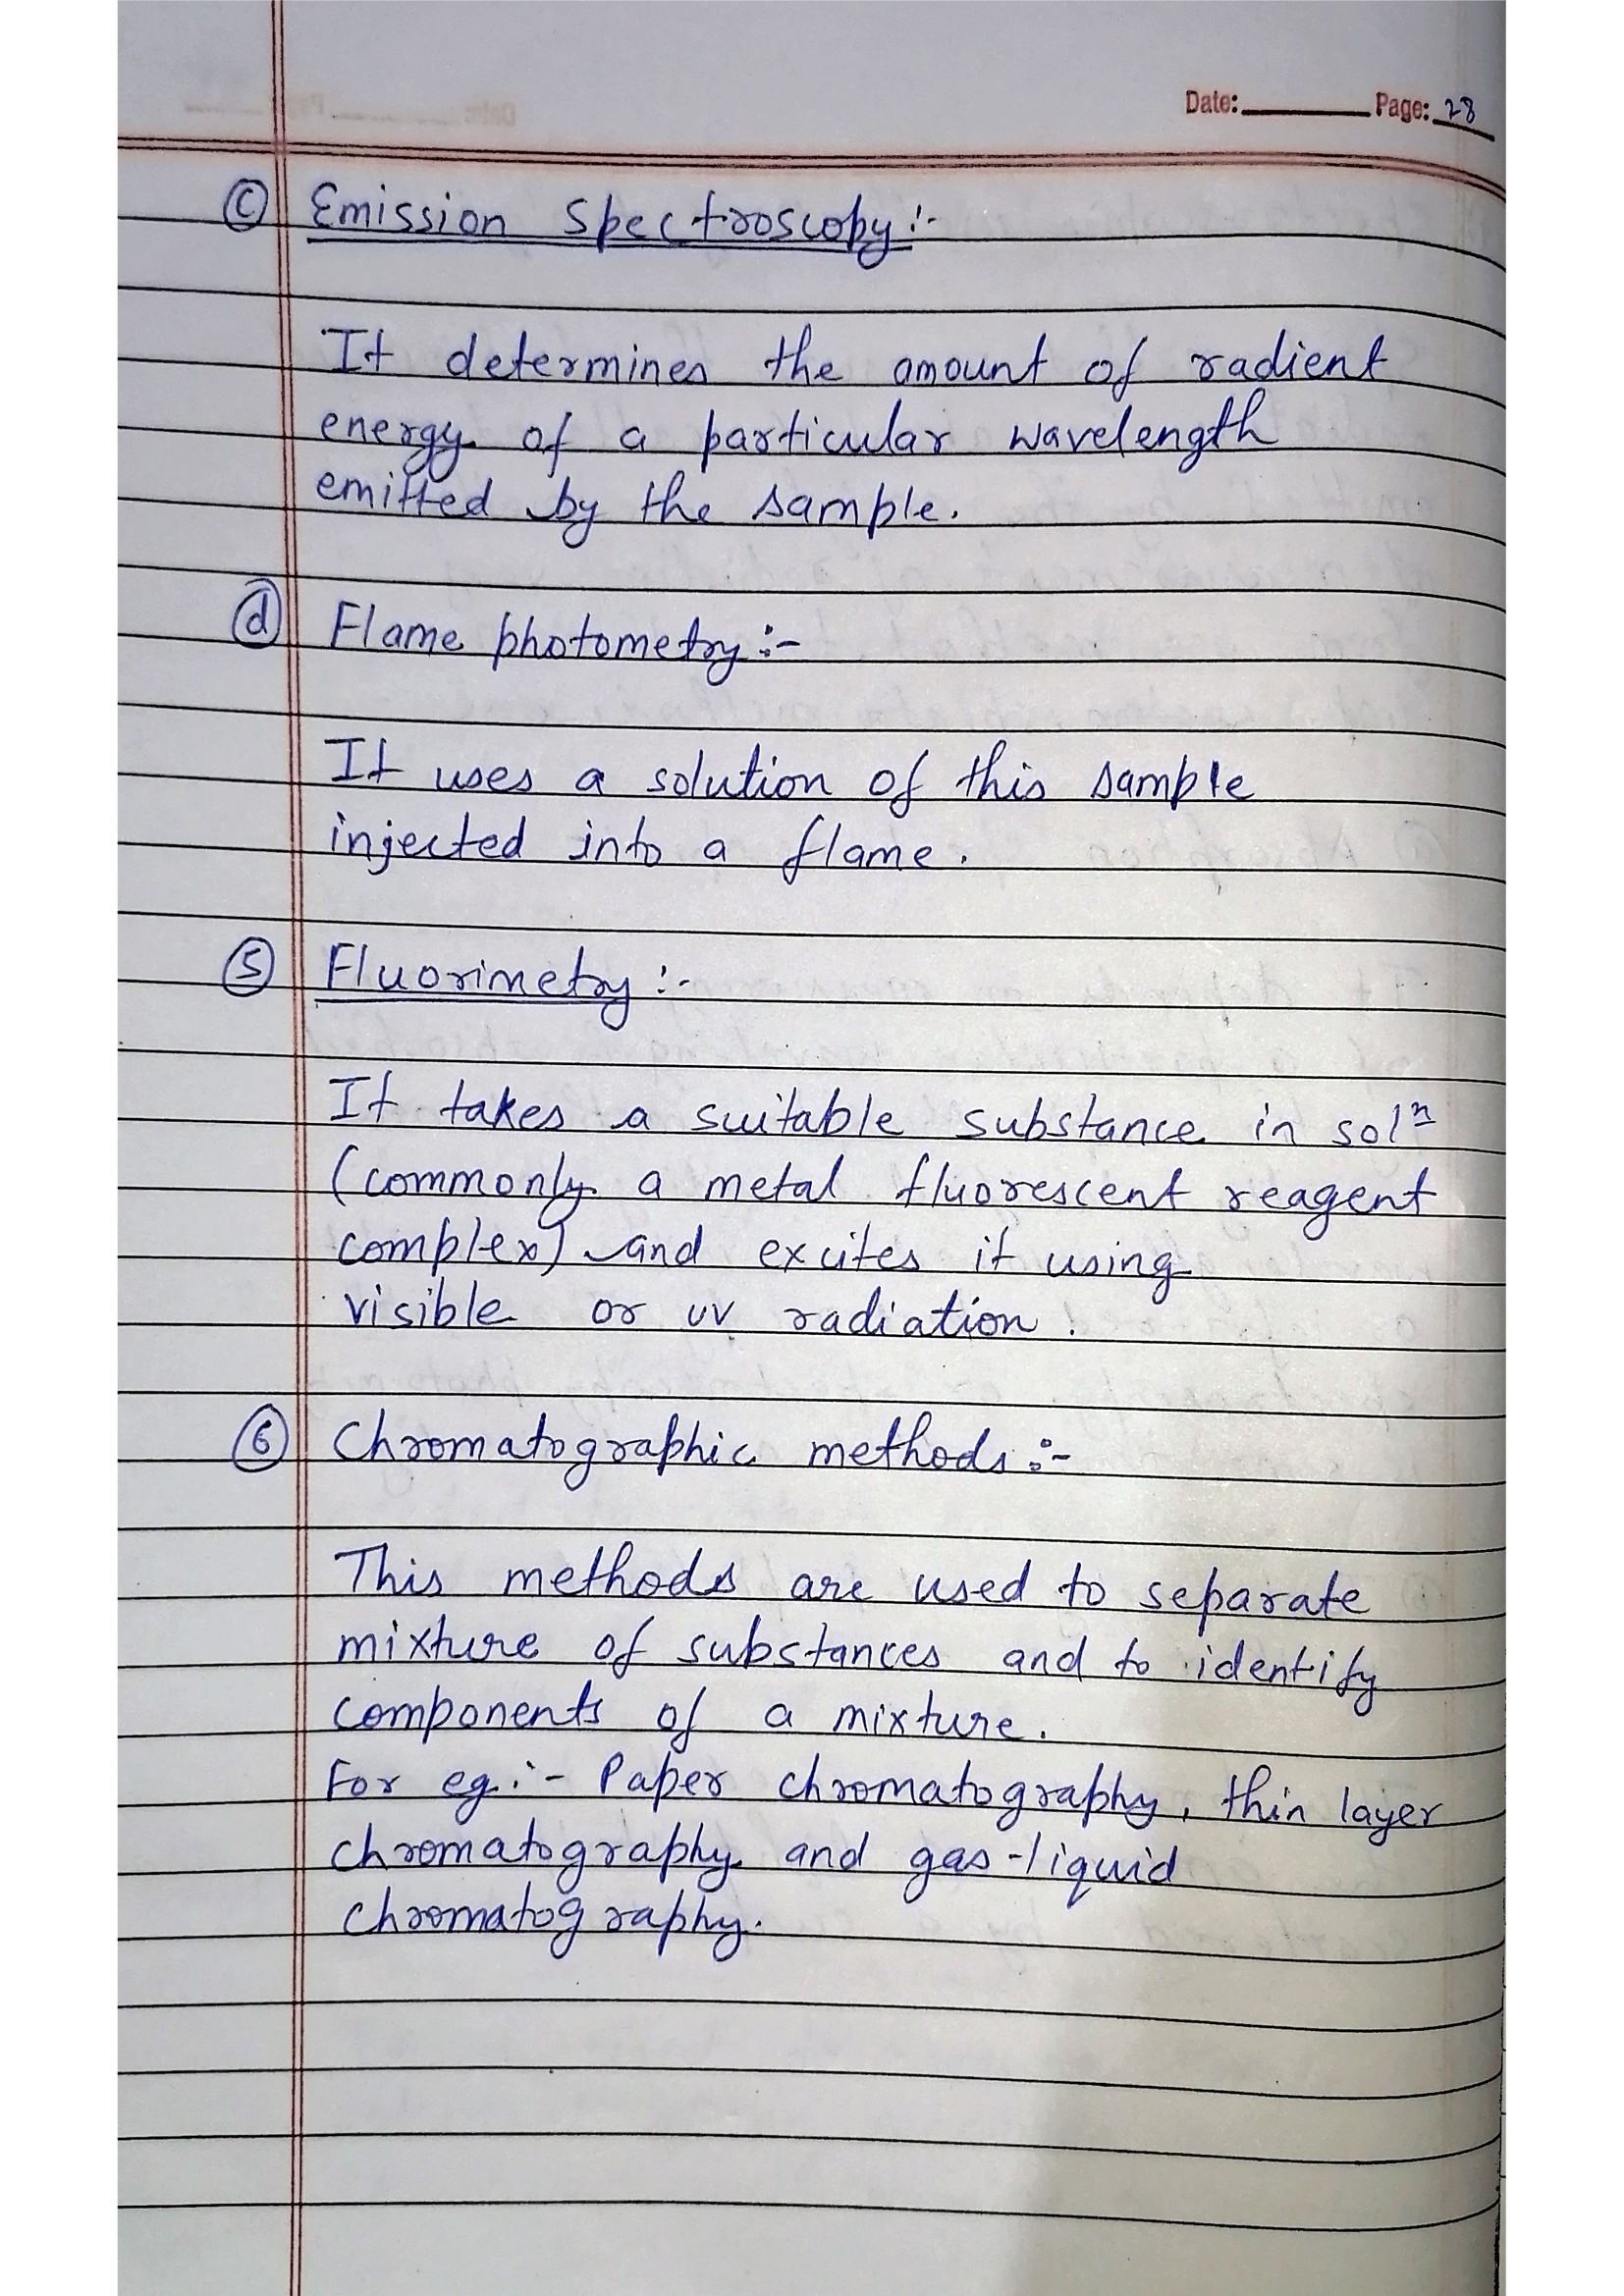 Date: Page: 28
ⓒ Emission Spectroscopy:-
It determines the amount of radient
energy of a particular wavelength
emitted by the sample.
ⓓ Flame photometry:-
It uses a solution of this sample
injected into a flame.
⑤ Fluorimetry:-
It takes a suitable substance in solⁿ
(commonly a metal fluorescent reagent
complex) and excites it using
visible or uv radiation.
⑥ Chromatographic methods:-
This methods are used to separate
mixture of substances and to identify
components of a mixture.
For eg:- Paper chromatography, thin layer
chromatography and gas-liquid
chromatography.